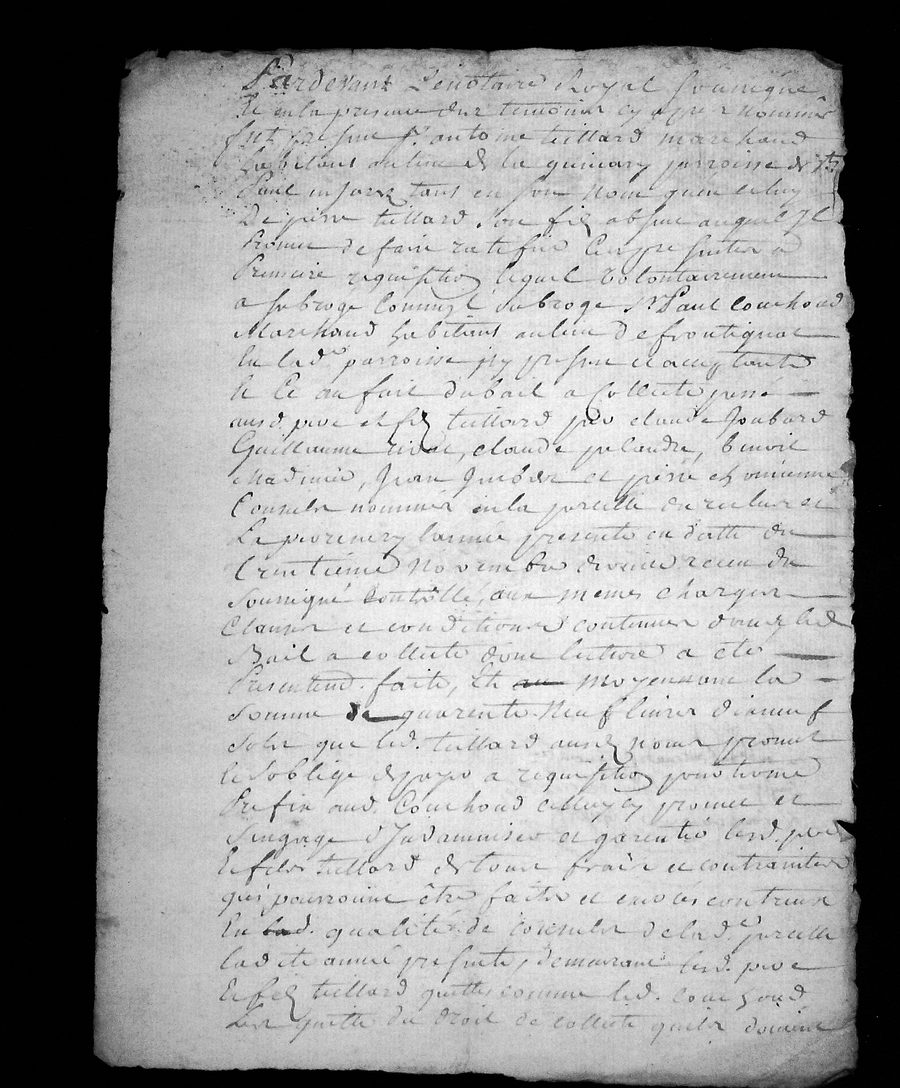 Pardevant Le notaire Royal soussigné
Et en la presence des temoins cy apres nommés
fut presant Sr. antoine teillard marchand
habitant au lieu de la parroisse de St
Paul en Jarez tant en son nom qu'en celuy
De pierre teillard son fils absent auquel Jl
Promet de faire ratifier les presentes a
Premiere requisition lequel volontairement
a subrogé comme Jl subroge Sr Paul Couchoud
Marchand habitant au lieu de frontignat
En lad.e parroisse jcy present et acceptant
Et Ce au fait du bail a Collecte passé
aud. pere et fils teillard par claude Joubard
Guillaume claude jalandre, benoit
Jean et pierre
Consuls nommés en la parcelle de et
Le l'année presente en datte du
trentieme Novembre dernier receu du
soussigné Controllé, aux memes charges
Clauses et conditions contenues dans led
Bail a collecte dont lecture a eté
Presentemt. faite, Et moyennant la
somme de quarente Neuf livres dix neuf
sols que led. teillard aud. nom promet
et s'oblige de payer a requisition pour terme
Prefix aud. Couchoud celluy cy promet et
s'engage d'Jndamniser et garentir lesd. pere
Et fils teillard de tous fraix et contraintes
qui pourroint être faites et contreux
En lad. qualité de Consuls de lad.e parcelle
lad ite année presente, demeurant lesd. pere
Et fils teillard quittes comme led. Couchoud
Les quitte du droit de collecte quils doivent